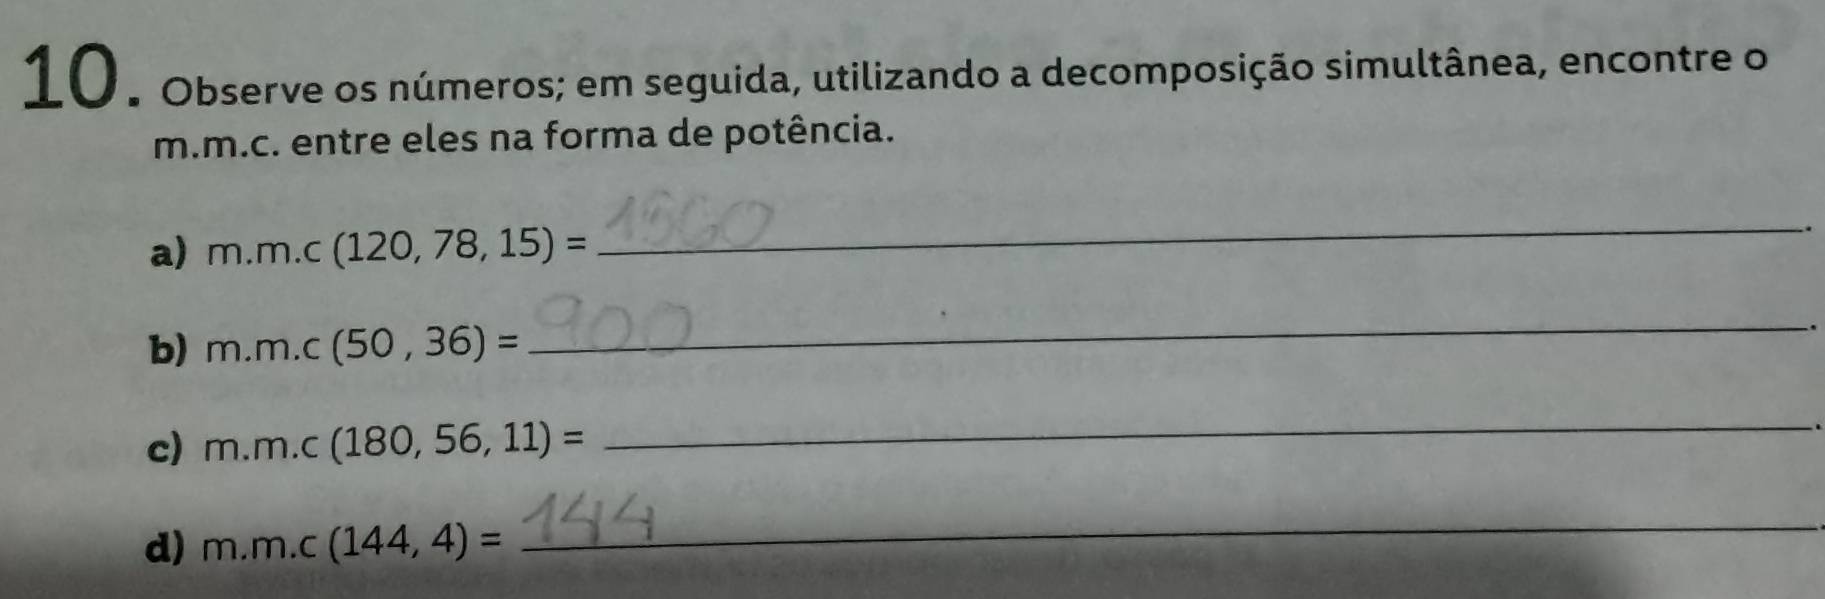 10. Observe os números; em seguida, utilizando a decomposição simultânea, encontre o
m.m.c. entre eles na forma de potência.
a) m.m.c (120, 78, 15) = 1560.
b) m.m.c (50 , 36) = 900.
c) m.m.c (180, 56, 11) = .
d) m.m.c (144, 4) = 144.